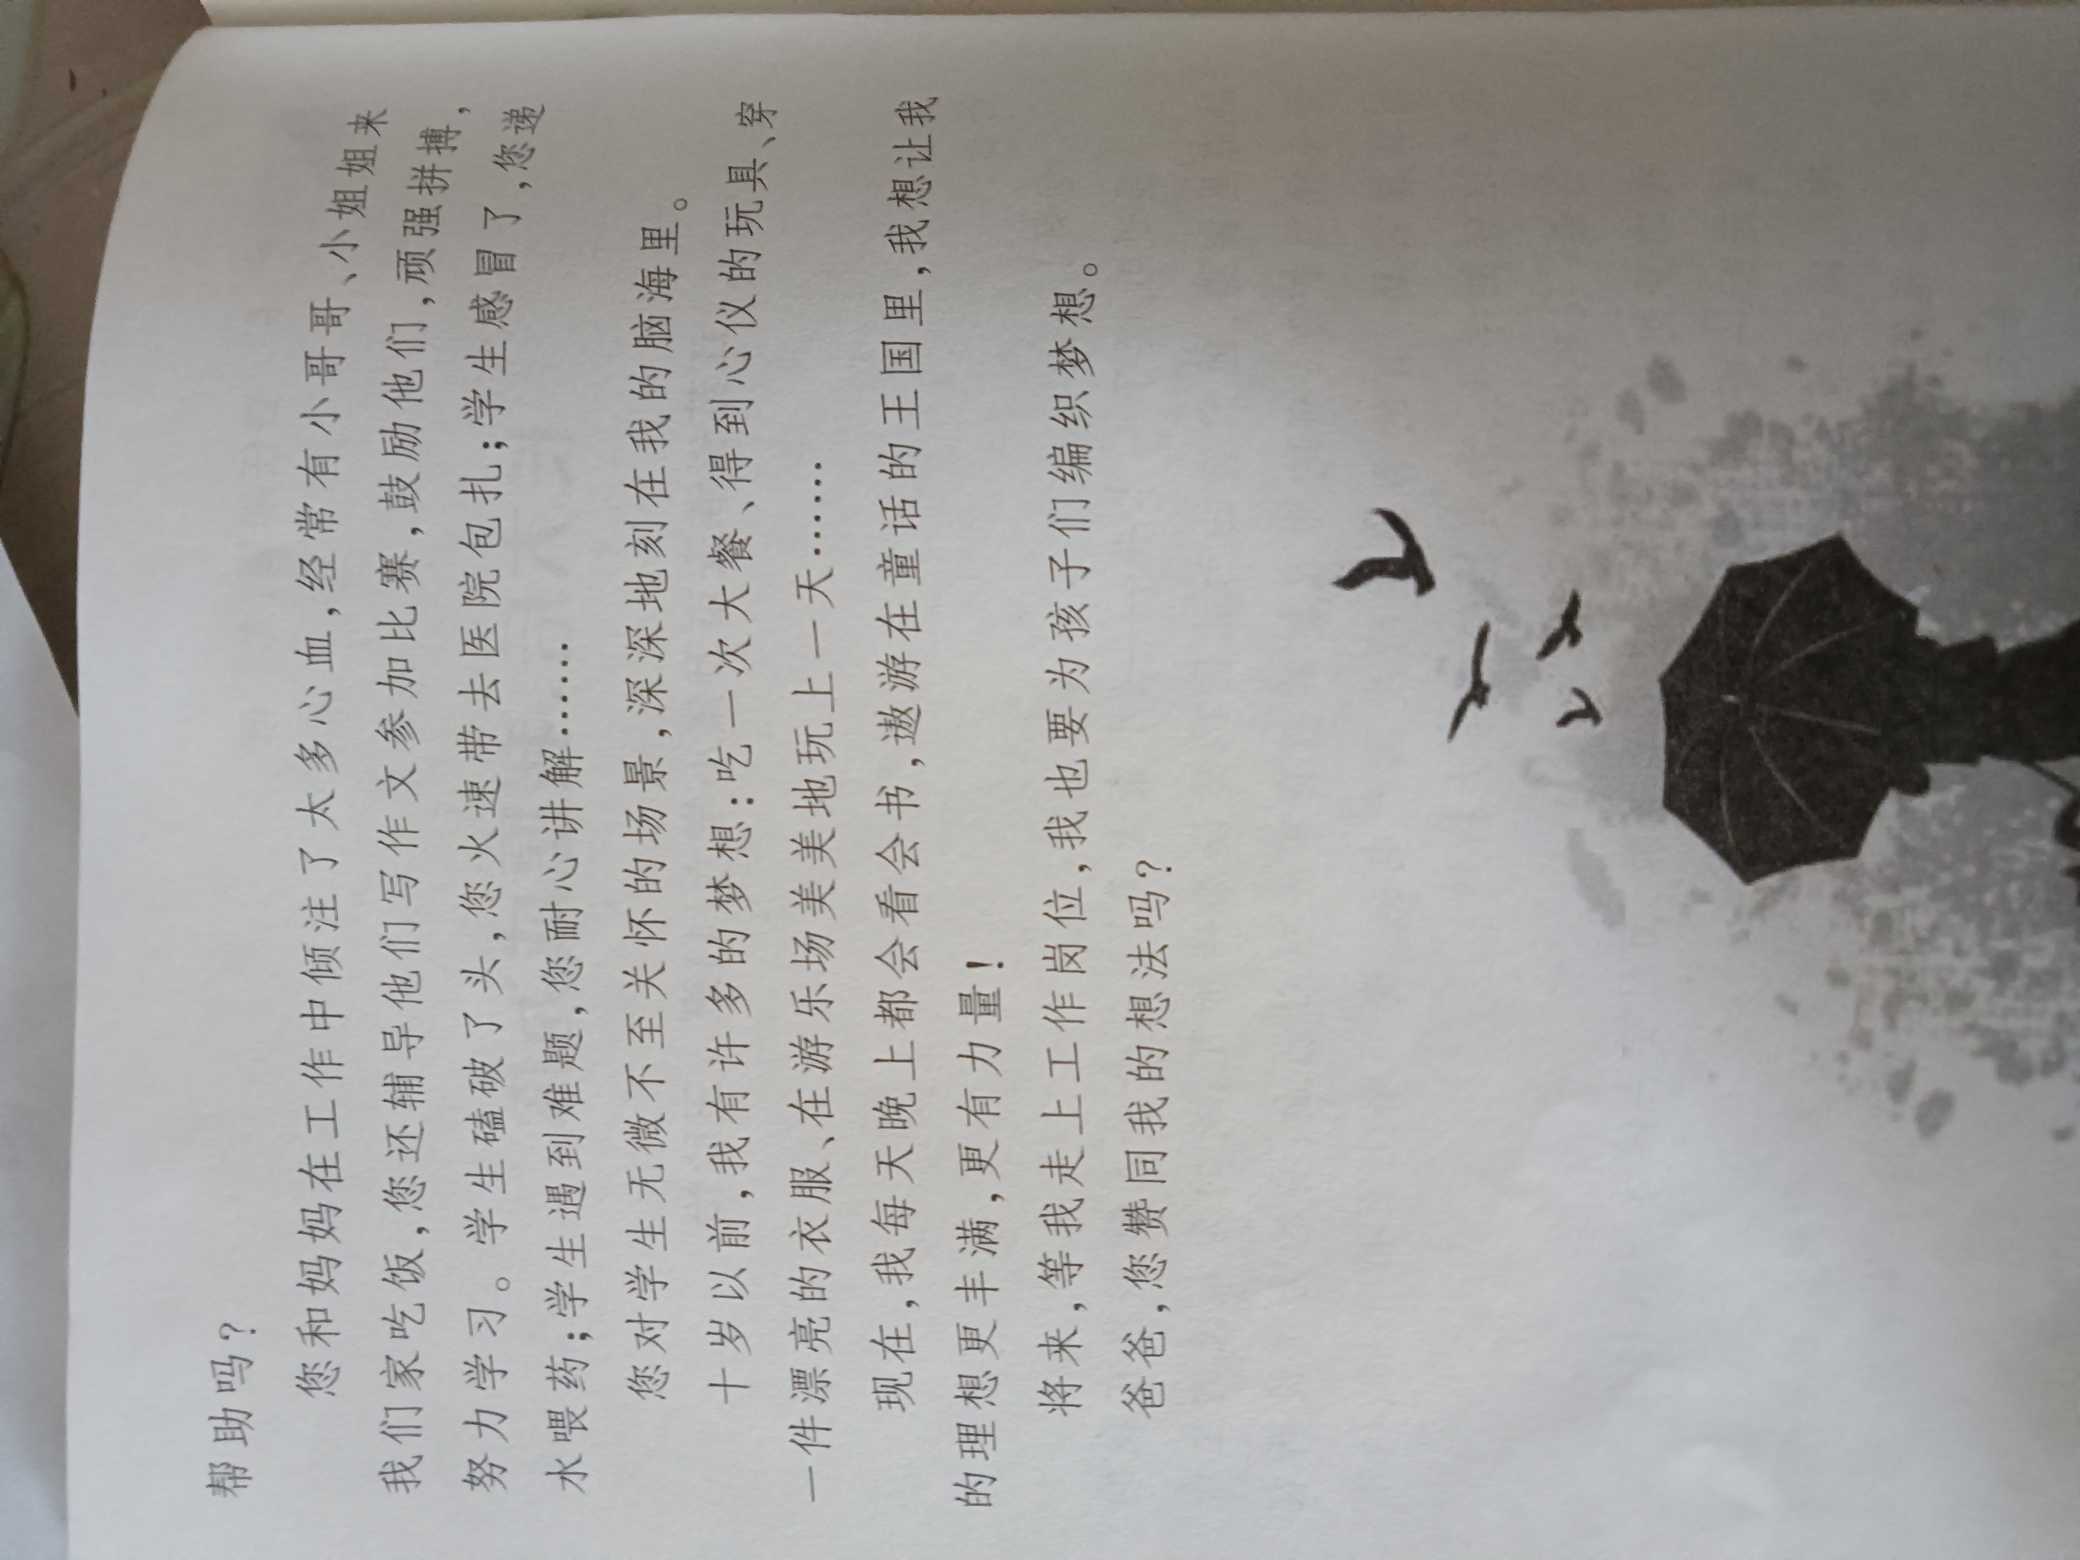 帮助吗？
您和妈妈在工作中倾注了太多心血，经常有小哥哥、小姐姐来
我们家吃饭，您还辅导他们写作文参加比赛，鼓励他们，顽强拼搏，
努力学习。学生磕破了头，您火速带去医院包扎；学生感冒了，您递
水喂药；学生遇到难题，您耐心讲解……
您对学生无微不至关怀的场景，深深地刻在我的脑海里。
十岁以前，我有许多的梦想：吃一次大餐、得到心仪的玩具、穿
一件漂亮的衣服、在游乐场美美地玩上一天……
现在，我每天晚上都会看会书，遨游在童话的王国里，我想让我
的理想更丰满，更有力量！
将来，等我走上工作岗位，我也要为孩子们编织梦想。
爸爸，您赞同我的想法吗？